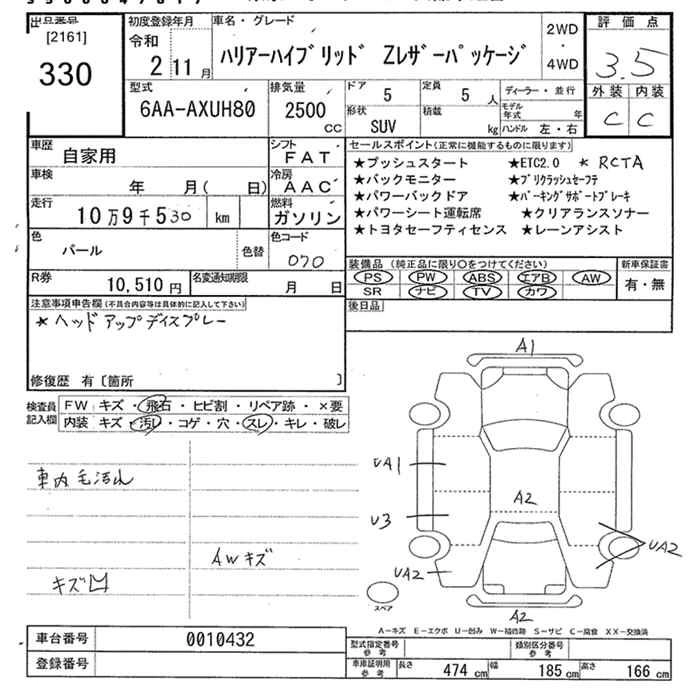 出品番号
[2161]
330
初度登録年月
令和
2 11月
車名・グレード
ハリアーハイブリッド Zレザーパッケージ
2WD
・
4WD
評価点
3.5
外装 内装
C C
型式
6AA-AXUH80
排気量
2500
CC
ドア
5
定員
5 人
形状
SUV
積載
kg
ディーラー・並行
モデル
年式 年
ハンドル 左・右
車歴
自家用
シフト
FAT
車検
年 月( 日)
冷房
AAC
走行
10万9千530 km
燃料
ガソリン
色
パール
色替
色コード
070
R券
10,510円
名変通知期限
月 日
セールスポイント(正常に機能するものに限ります)
★プッシュスタート ★ETC2.0 * RCTA
★バックモニター ★プリクラッシュセーフテ
★パワーバックドア ★パーキングサポートブレーキ
★パワーシート運転席 ★クリアランスソナー
★トヨタセーフティセンス ★レーンアシスト
装備品(純正品に限り○をつけてください)
PS PW ABS エアB AW
SR ナビ TV カワ
新車保証書
有・無
後日品
注意事項申告欄(不具合内容等は具体的に記入して下さい)
* ヘッドアップディスプレー
修復歴 有〔箇所 〕
検査員
記入欄
FW キズ・飛石・ヒビ割・リペア跡・×要
内装 キズ・汚レ・コゲ・穴・スレ・キレ・破レ
車内毛汚れ
AWキズ
キズ凹
A1
UA1
A2
U3
UA2
UA2
A2
スペア
A-キズ E-エクボ U-凹み W-補修跡 S-サビ C-腐食 XX-交換済
車台番号 0010432
登録番号
型式指定番号
参考
類別区分番号
参考
車庫証明用
参考
長さ 474 cm 幅 185 cm 高さ 166 cm